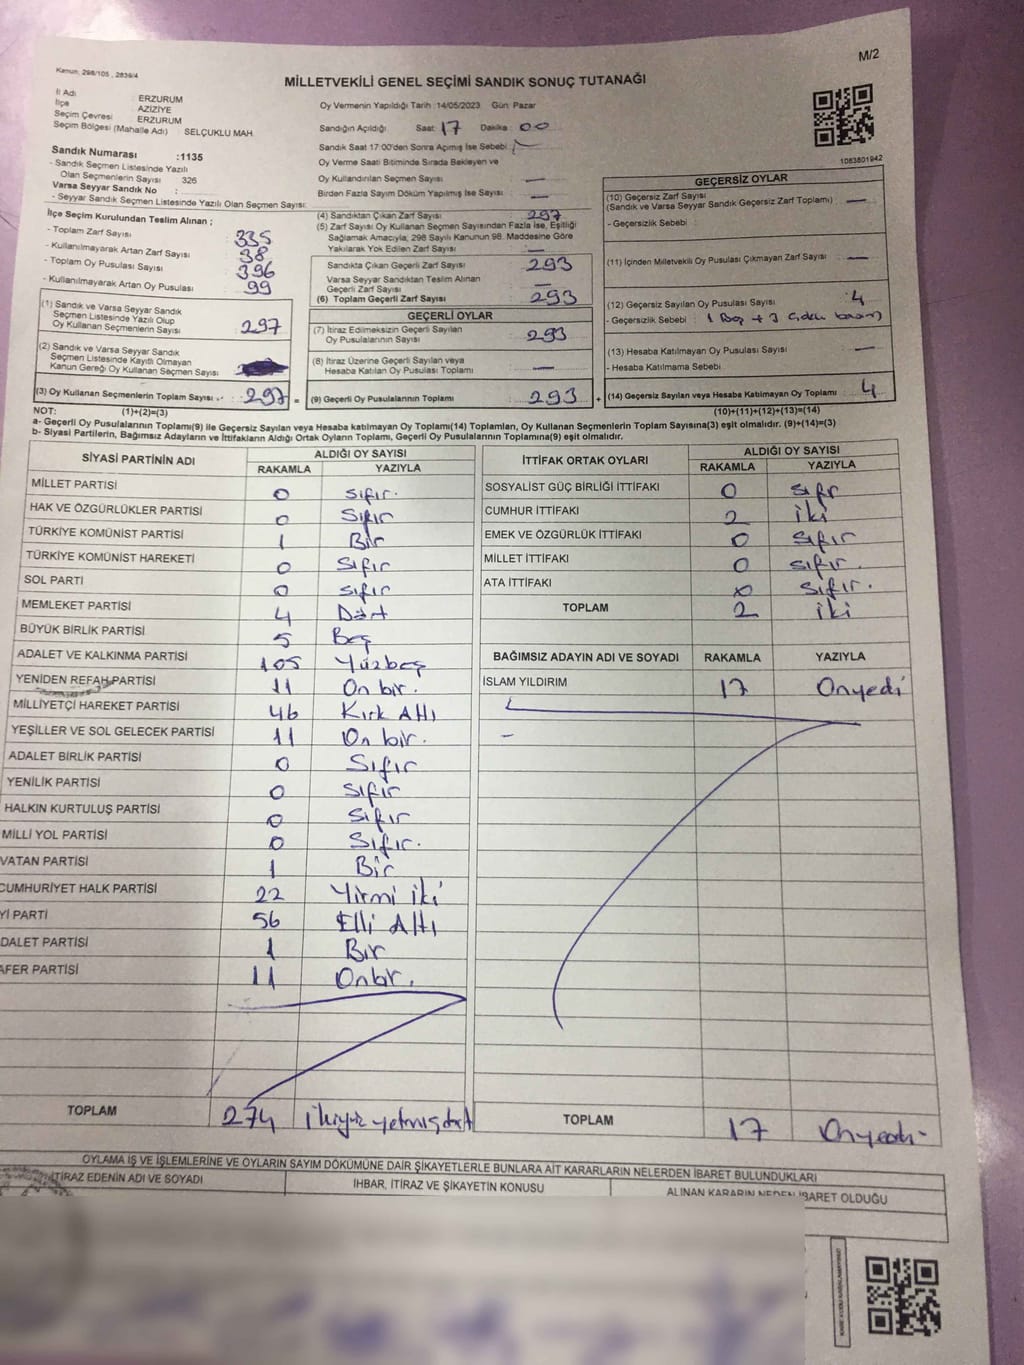 M/2
Kanun, 298/105 , 2839/4
MİLLETVEKİLİ GENEL SEÇİMİ SANDIK SONUÇ TUTANAĞI
İl Adı : ERZURUM
İlçe : AZİZİYE
Seçim Çevresi : ERZURUM
Seçim Bölgesi (Mahalle Adı) : SELÇUKLU MAH.
Sandık Numarası :1135
- Sandık Seçmen Listesinde Yazılı
Olan Seçmenlerin Sayısı : 326
Varsa Seyyar Sandık No :
- Seyyar Sandık Seçmen Listesinde Yazılı Olan Seçmen Sayısı:
Oy Vermenin Yapıldığı Tarih :14/05/2023 Gün: Pazar
Sandığın Açıldığı Saat: 17 Dakika : 00
Sandık Saat 17:00'den Sonra Açılmış İse Sebebi :
Oy Verme Saati Bitiminde Sırada Bekleyen ve
Oy Kullandırılan Seçmen Sayısı : —
Birden Fazla Sayım Döküm Yapılmış İse Sayısı : —
1083801942
İlçe Seçim Kurulundan Teslim Alınan ;
- Toplam Zarf Sayısı : 335
- Kullanılmayarak Artan Zarf Sayısı : 38
- Toplam Oy Pusulası Sayısı : 396
- Kullanılmayarak Artan Oy Pusulası : 99
(1) Sandık ve Varsa Seyyar Sandık
Seçmen Listesinde Yazılı Olup
Oy Kullanan Seçmenlerin Sayısı : 297
(2) Sandık ve Varsa Seyyar Sandık
Seçmen Listesinde Kayıtlı Olmayan
Kanun Gereği Oy Kullanan Seçmen Sayısı :
(3) Oy Kullanan Seçmenlerin Toplam Sayısı : 297 =
(4) Sandıktan Çıkan Zarf Sayısı : 297
(5) Zarf Sayısı Oy Kullanan Seçmen Sayısından Fazla İse, Eşitliği
Sağlamak Amacıyla, 298 Sayılı Kanunun 98. Maddesine Göre
Yakılarak Yok Edilen Zarf Sayısı : —
Sandıkta Çıkan Geçerli Zarf Sayısı : 293
Varsa Seyyar Sandıktan Teslim Alınan
Geçerli Zarf Sayısı : —
(6) Toplam Geçerli Zarf Sayısı : 293
GEÇERLİ OYLAR
(7) İtiraz Edilmeksizin Geçerli Sayılan
Oy Pusulalarının Sayısı : 293
(8) İtiraz Üzerine Geçerli Sayılan veya
Hesaba Katılan Oy Pusulası Toplamı : —
(9) Geçerli Oy Pusulalarının Toplamı : 293 +
GEÇERSİZ OYLAR
(10) Geçersiz Zarf Sayısı
(Sandık ve Varsa Seyyar Sandık Geçersiz Zarf Toplamı) : —
- Geçersizlik Sebebi :
(11) İçinden Milletvekili Oy Pusulası Çıkmayan Zarf Sayısı : —
(12) Geçersiz Sayılan Oy Pusulası Sayısı : 4
- Geçersizlik Sebebi : 1 Boş + 3
(13) Hesaba Katılmayan Oy Pusulası Sayısı : —
- Hesaba Katılmama Sebebi :
(14) Geçersiz Sayılan veya Hesaba Katılmayan Oy Toplamı : 4
NOT: (1)+(2)=(3) (10)+(11)+(12)+(13)=(14)
a- Geçerli Oy Pusulalarının Toplamı(9) ile Geçersiz Sayılan veya Hesaba katılmayan Oy Toplamı(14) Toplamları, Oy Kullanan Seçmenlerin Toplam Sayısına(3) eşit olmalıdır. (9)+(14)=(3)
b- Siyasi Partilerin, Bağımsız Adayların ve İttifakların Aldığı Ortak Oyların Toplamı, Geçerli Oy Pusulalarının Toplamına(9) eşit olmalıdır.
SİYASİ PARTİNİN ADI ALDIĞI OY SAYISI
RAKAMLA YAZIYLA
MİLLET PARTİSİ 0 Sıfır.
HAK VE ÖZGÜRLÜKLER PARTİSİ 0 Sıfır
TÜRKİYE KOMÜNİST PARTİSİ 1 Bir
TÜRKİYE KOMÜNİST HAREKETİ 0 Sıfır
SOL PARTİ 0 Sıfır
MEMLEKET PARTİSİ 4 Dört
BÜYÜK BİRLİK PARTİSİ 5 Beş
ADALET VE KALKINMA PARTİSİ 105 Yüzbeş
YENİDEN REFAH PARTİSİ 11 On bir.
MİLLİYETÇİ HAREKET PARTİSİ 46 Kırk Altı
YEŞİLLER VE SOL GELECEK PARTİSİ 11 On bir.
ADALET BİRLİK PARTİSİ 0 Sıfır
YENİLİK PARTİSİ 0 Sıfır
HALKIN KURTULUŞ PARTİSİ 0 Sıfır
MİLLİ YOL PARTİSİ 0 Sıfır.
VATAN PARTİSİ 1 Bir
CUMHURİYET HALK PARTİSİ 22 Yirmi iki
Yİ PARTİ 56 Elli Altı
DALET PARTİSİ 1 Bir
AFER PARTİSİ 11 Onbir.
TOPLAM 274 İkiyüz yetmişdört
İTTİFAK ORTAK OYLARI ALDIĞI OY SAYISI
RAKAMLA YAZIYLA
SOSYALİST GÜÇ BİRLİĞİ İTTİFAKI 0 Sıfır
CUMHUR İTTİFAKI 2 iki
EMEK VE ÖZGÜRLÜK İTTİFAKI 0 Sıfır
MİLLET İTTİFAKI 0 Sıfır.
ATA İTTİFAKI 0 Sıfır.
TOPLAM 2 iki
BAĞIMSIZ ADAYIN ADI VE SOYADI RAKAMLA YAZIYLA
İSLAM YILDIRIM 17 Onyedi
TOPLAM 17 Onyedi
OYLAMA İŞ VE İŞLEMLERİNE VE OYLARIN SAYIM DÖKÜMÜNE DAİR ŞİKAYETLERLE BUNLARA AİT KARARLARIN NELERDEN İBARET BULUNDUKLARI
İTİRAZ EDENİN ADI VE SOYADI İHBAR, İTİRAZ VE ŞİKAYETİN KONUSU ALINAN KARARIN NEDEN İBARET OLDUĞU